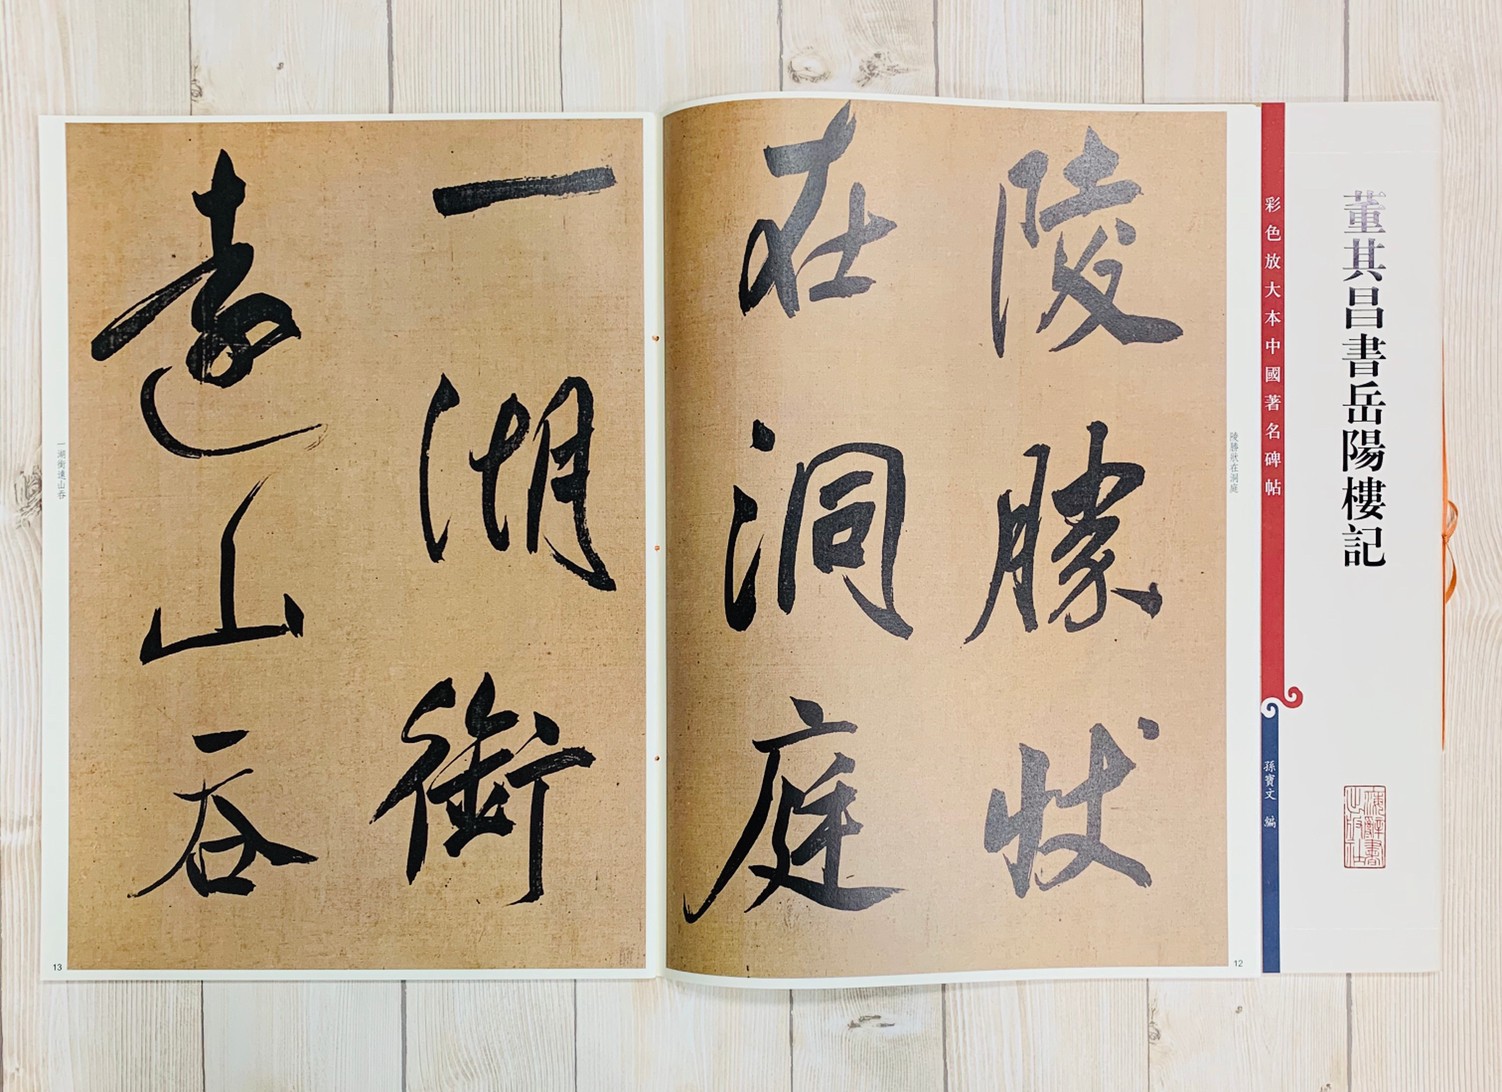 董其昌書岳陽樓記
彩色放大本中國著名碑帖
孫寶文 編
陵勝狀在洞庭
陵勝狀
在洞庭
12
一湖銜
遠山吞
一湖銜遠山吞
13